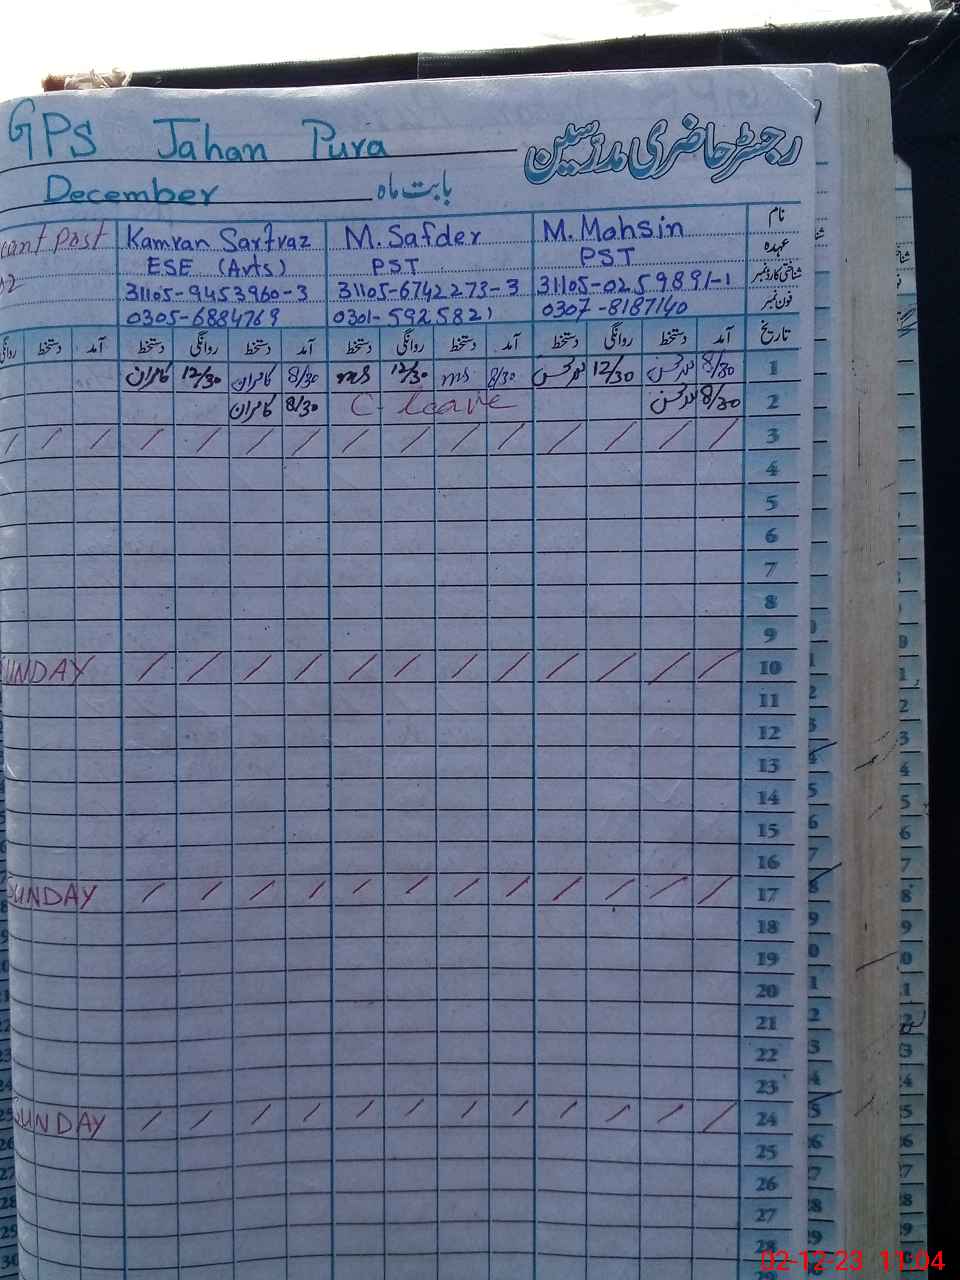 GPS Jahan Pura رجسٹر حاضری مدرسین
December بابت ماہ
cant Post Kamran Sarfraz M. Safder M. Mohsin نام
ESE (Arts) PST PST عہدہ
31105-9453960-3 31105-6742273-3 31105-0259891-1 شناختی کارڈ نمبر
0305-6884769 0301-5925821 0307-8187140 فون نمبر
تاریخ آمد دستخط روانگی دستخط آمد دستخط روانگی دستخط آمد دستخط روانگی دستخط آمد دستخط روانگی
1 8/30 محسن 12/30 محسن 8/30 ms 12/30 ms 8/30 کامران 12/30 کامران
2 8/30 محسن C. leave 8/30 کامران
3
4
5
6
7
8
9
SUNDAY 10
11
12
13
14
15
16
SUNDAY 17
18
19
20
21
22
23
SUNDAY 24
25
26
27
28
02-12-23 11:04